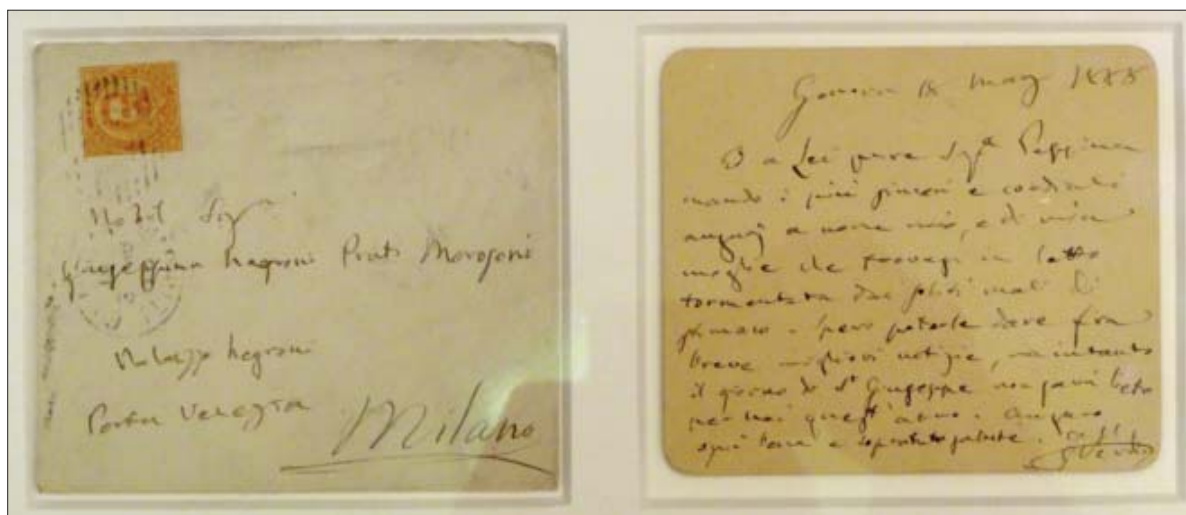 Nobil Sig
Giuseppina Negroni Prati Morosini
Palazzo Negroni
Porta Venezia
Milano
Genova 18 mag 1885
E a Lei pure Sigª Peppina
mando i più sinceri e cordiali
auguri a nome mio, e di mia
moglie che trovasi in letto
tormentata dai soliti mali di
stomaco. Spero poterle dare fra
breve migliori notizie, ma intanto
il giorno di Sᵗ Giuseppe non sarà lieto
per noi quest'anno. Auguro
ogni bene e sopratutto salute.
G Verdi